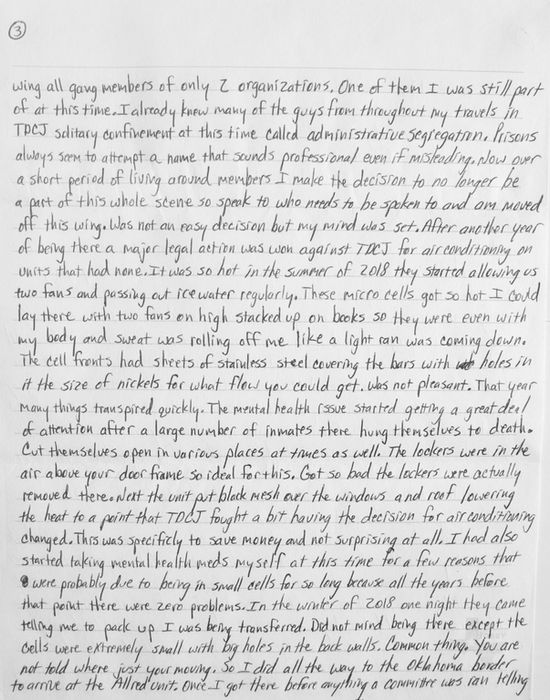 3
wing all gang members of only 2 organizations. One of them I was still part
of at this time. I already knew many of the guys from throughout my travels in
TDCJ solitary confinement at this time called administrative segregation. Prisons
always seem to attempt a name that sounds professional even if misleading. Now over
a short period of living around members I make the decision to no longer be
a part of this whole scene so speak to who needs to be spoken to and am moved
off this wing. Was not an easy decision but my mind was set. After another year
of being there a major legal action was won against TDCJ for air conditioning on
units that had none. It was so hot in the summer of 2018 they started allowing us
two fans and passing out ice water regularly. These micro cells got so hot I could
lay there with two fans on high stacked up on books so they were even with
my body and sweat was rolling off me like a light rain was coming down.
The cell fronts had sheets of stainless steel covering the bars with holes in
it the size of nickels for what flow you could get. Was not pleasant. That year
many things transpired quickly. The mental health issue started getting a great deal
of attention after a large number of inmates there hung themselves to death.
Cut themselves open in various places at times as well. The lockers were in the
air above your door frame so ideal for this. Got so bad the lockers were actually
removed there. Next the unit put black mesh over the windows and roof lowering
the heat to a point that TDCJ fought a bit having the decision for air conditioning
changed. This was specificly to save money and not surprising at all. I had also
started taking mental health meds myself at this time for a few reasons that
were probably due to being in small cells for so long because all the years before
that point there were zero problems. In the winter of 2018 one night they came
telling me to pack up I was being transferred. Did not mind being there except the
cells were extremely small with big holes in the back walls. Common thing. You are
not told where just your moving. So I did all the way to the Oklahoma border
to arrive at the Allred unit. Once I got there before anything a committee was ran telling